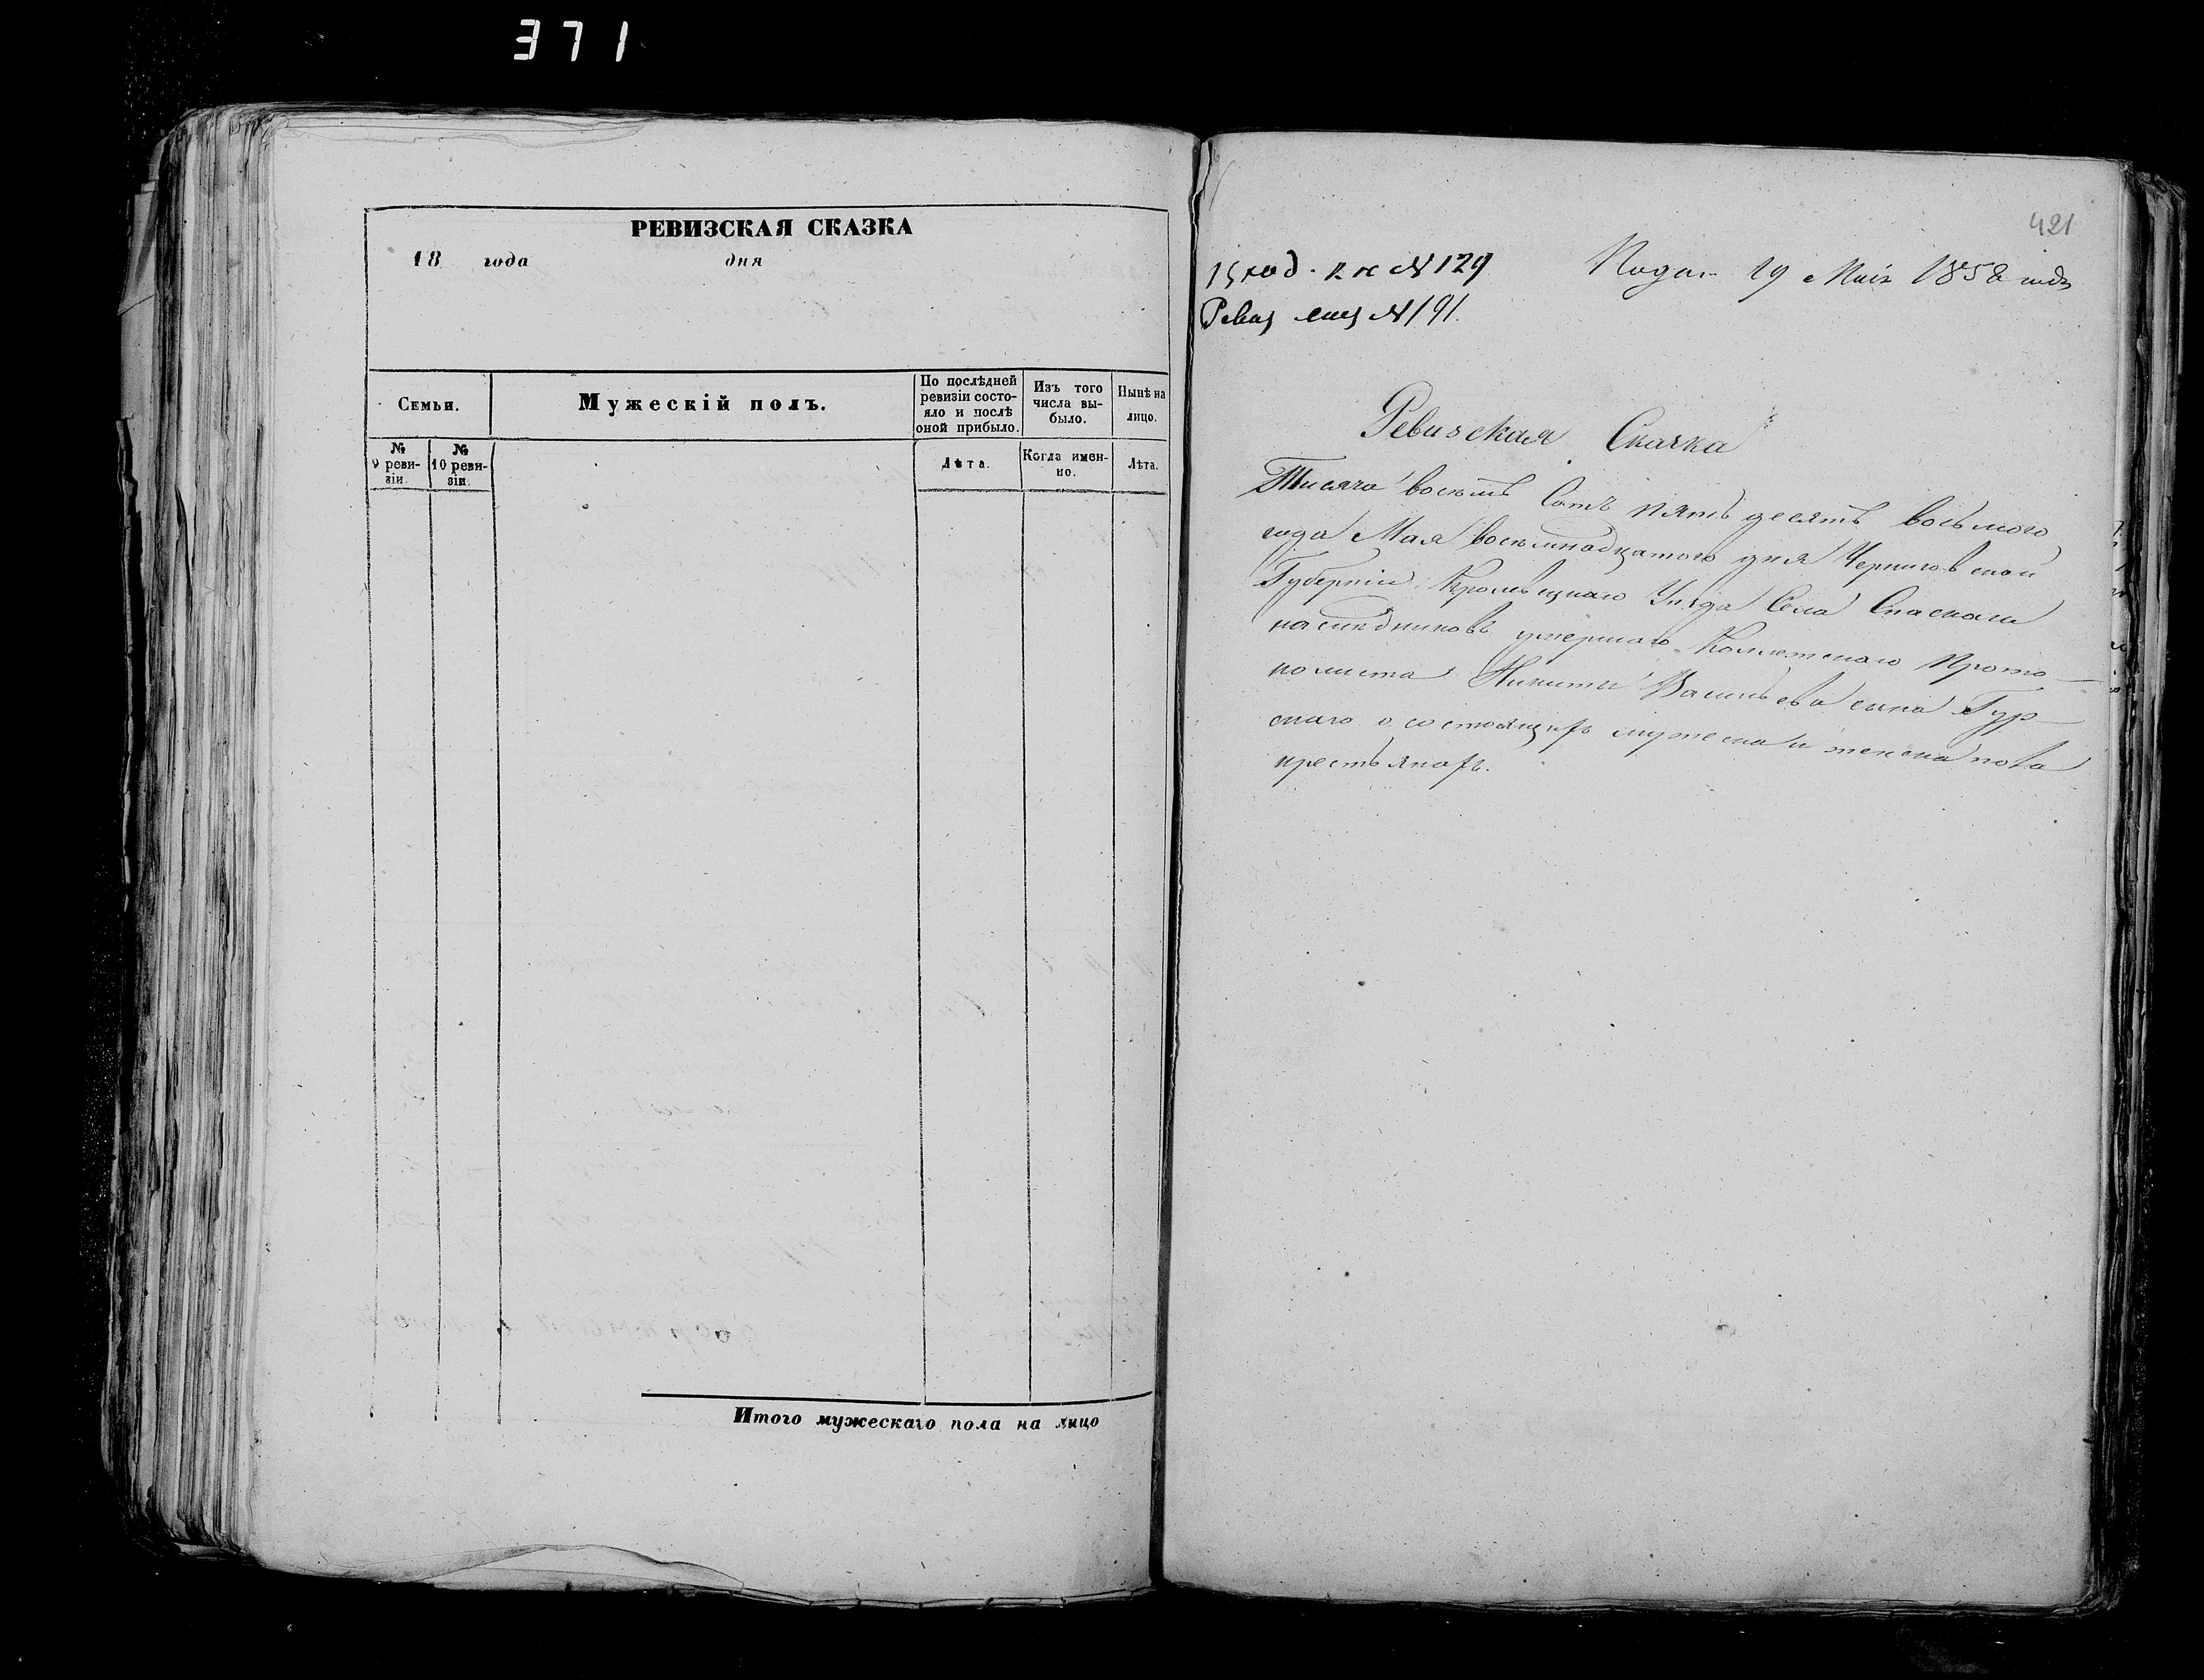 371
РЕВИЗСКАЯ СКАЗКА
18 года дня
Семьи.
Мужескій полъ.
По послѣдней ревизіи состо-
яло и послѣ
оной прибыло.
Изъ того
числа вы-
было.
Нынѣ на
лицо.
№
9 реви-
зіи.
№
10 реви-
зіи.
Лѣта.
Когда имен-
но.
Лѣта.
Итого мужескаго пола на лицо
421
№ 129
19 Маія 1858 года
Ревиз № 191.
Ревизская Сказка
Тисяча восемь Сотъ пятьдесятъ восьмого
года Мая восемнадцатого дня Черниговской
Губерніи Кролевецкаго Уезда Села Спаскаго
наследниковъ умершаго Колежскаго Прото
колиста Никиты Васильева сина Гур
скаго о состоящихъ мужеска и женска пола
крестьянахъ.